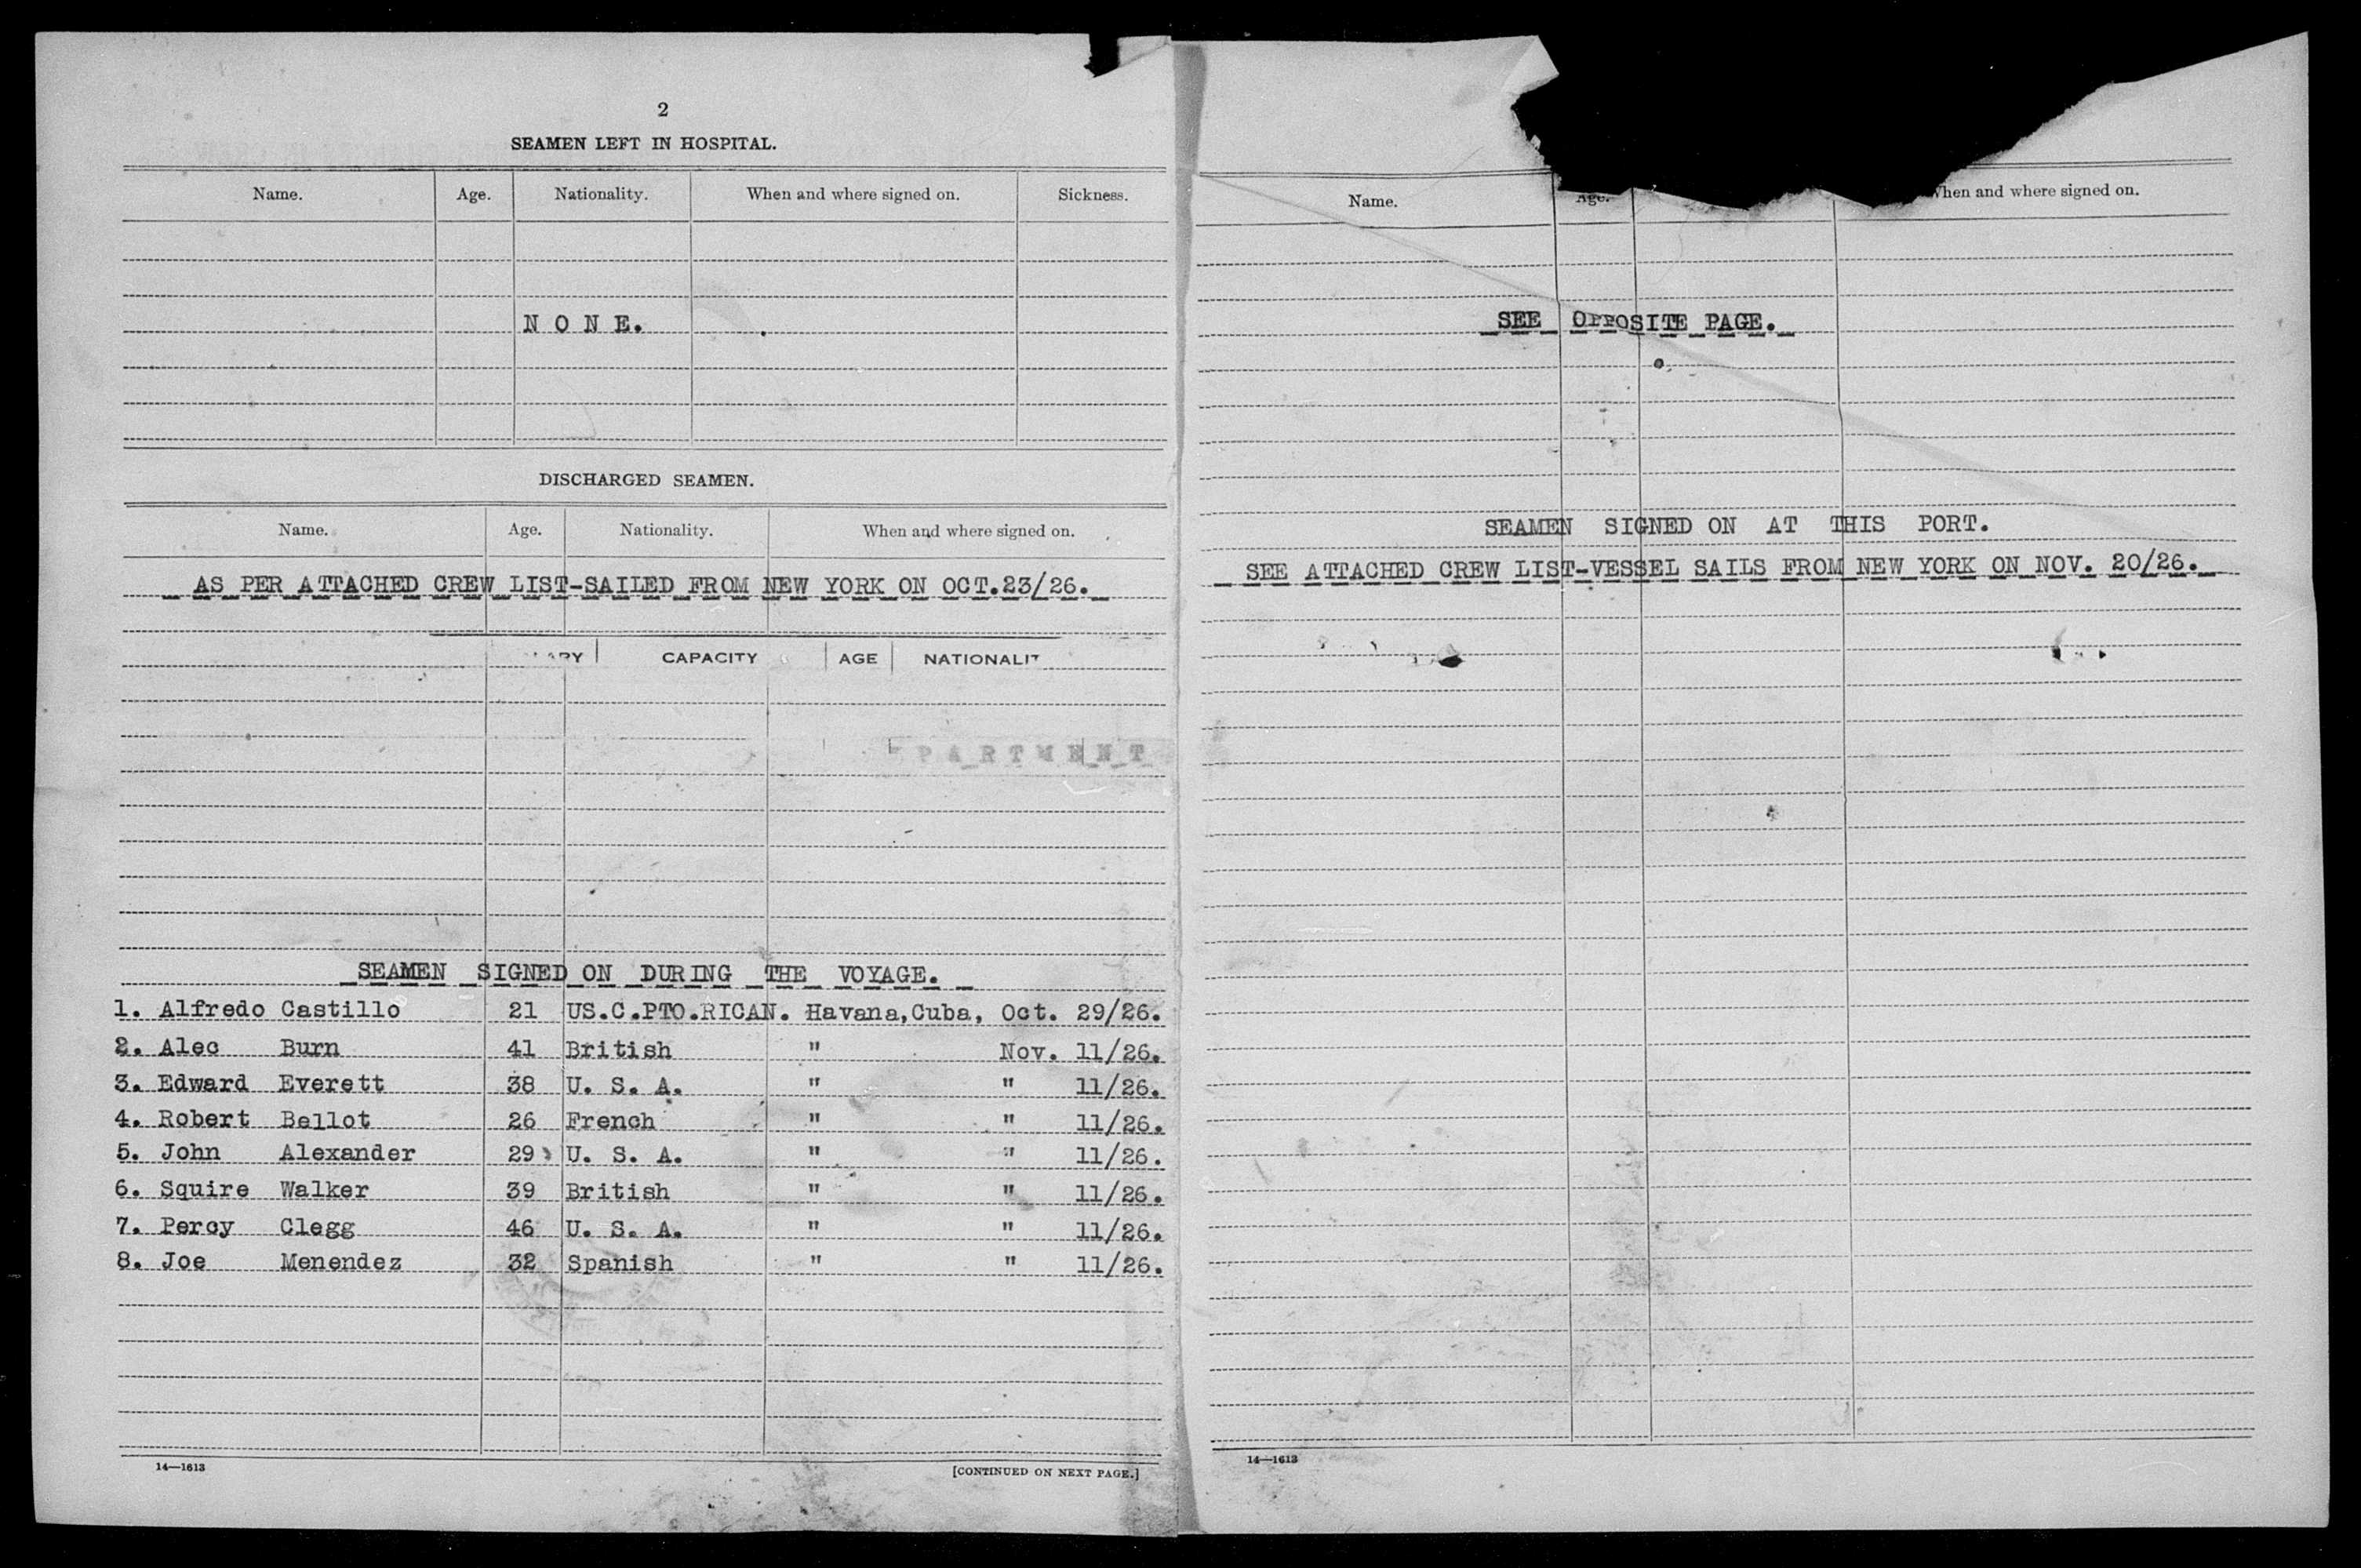 2
SEAMEN LEFT IN HOSPITAL.
Name. Age. Nationality. When and where signed on. Sickness.
N O N E.
DISCHARGED SEAMEN.
Name. Age. Nationality. When and where signed on.
AS PER ATTACHED CREW LIST-SAILED FROM NEW YORK ON OCT.23/26.
CAPACITY AGE NATIONALIT
PARTMENT
SEAMEN SIGNED ON DURING THE VOYAGE.
1. Alfredo Castillo 21 US.C.PTO.RICAN. Havana,Cuba, Oct. 29/26.
2. Alec Burn 41 British " Nov. 11/26.
3. Edward Everett 38 U. S. A. " " 11/26.
4. Robert Bellot 26 French " " 11/26.
5. John Alexander 29 U. S. A. " " 11/26.
6. Squire Walker 39 British " " 11/26.
7. Percy Clegg 46 U. S. A. " " 11/26.
8. Joe Menendez 32 Spanish " " 11/26.
14—1613 [CONTINUED ON NEXT PAGE.]
Name. Age. When and where signed on.
SEE OPPOSITE PAGE.
SEAMEN SIGNED ON AT THIS PORT.
SEE ATTACHED CREW LIST-VESSEL SAILS FROM NEW YORK ON NOV. 20/26.
14—1613